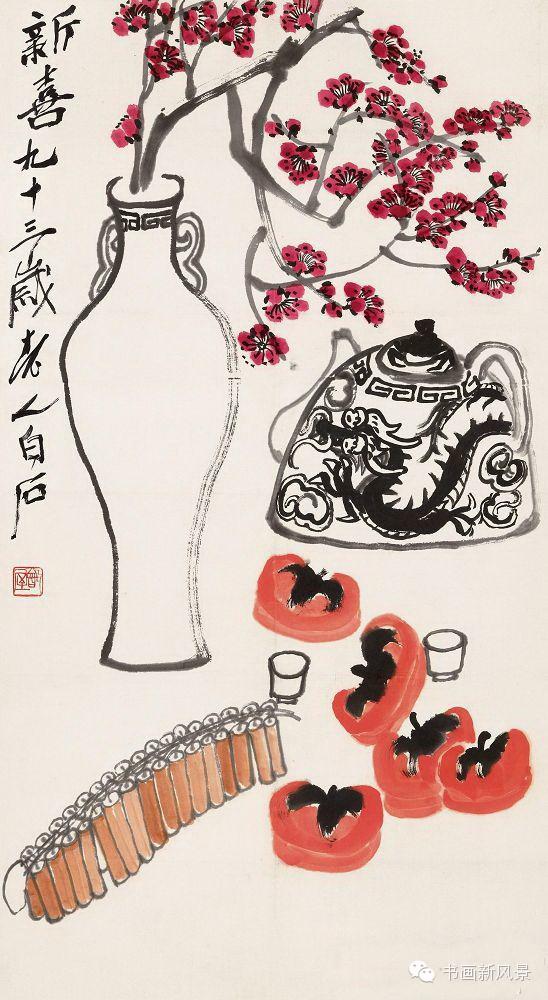 新喜九十三歲老人白石
书画新风景